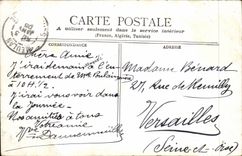 CARTE POSTALE
A utiliser seulement dans le service intérieur
(France, Algérie, Tunisie)
CORRESPONDANCE
Chère Amie
J'irai demain à l'en-
terrement de Mme
à 10 H 1/2.
J'irai vous voir dans
la journée.
Nos amitiés à tous
Madame Bénard
27, Rue de Neuilly
Versailles
(Seine-et-Oise)